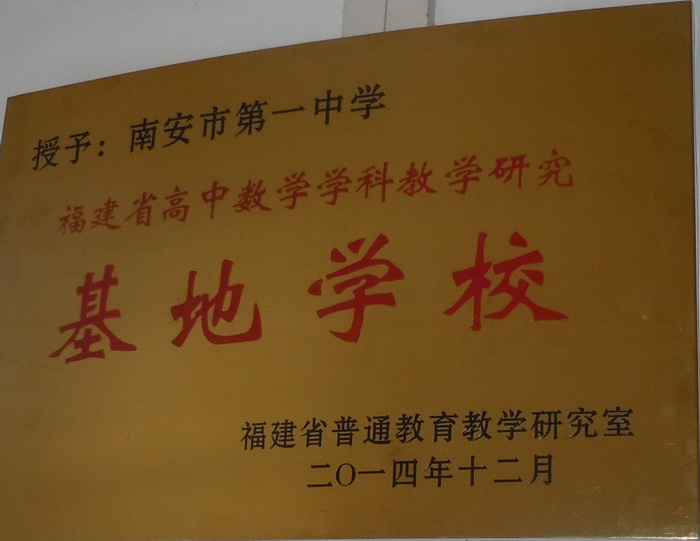 授予：南安市第一中学
福建省高中数学学科教学研究
基地学校
福建省普通教育教学研究室
二〇一四年十二月